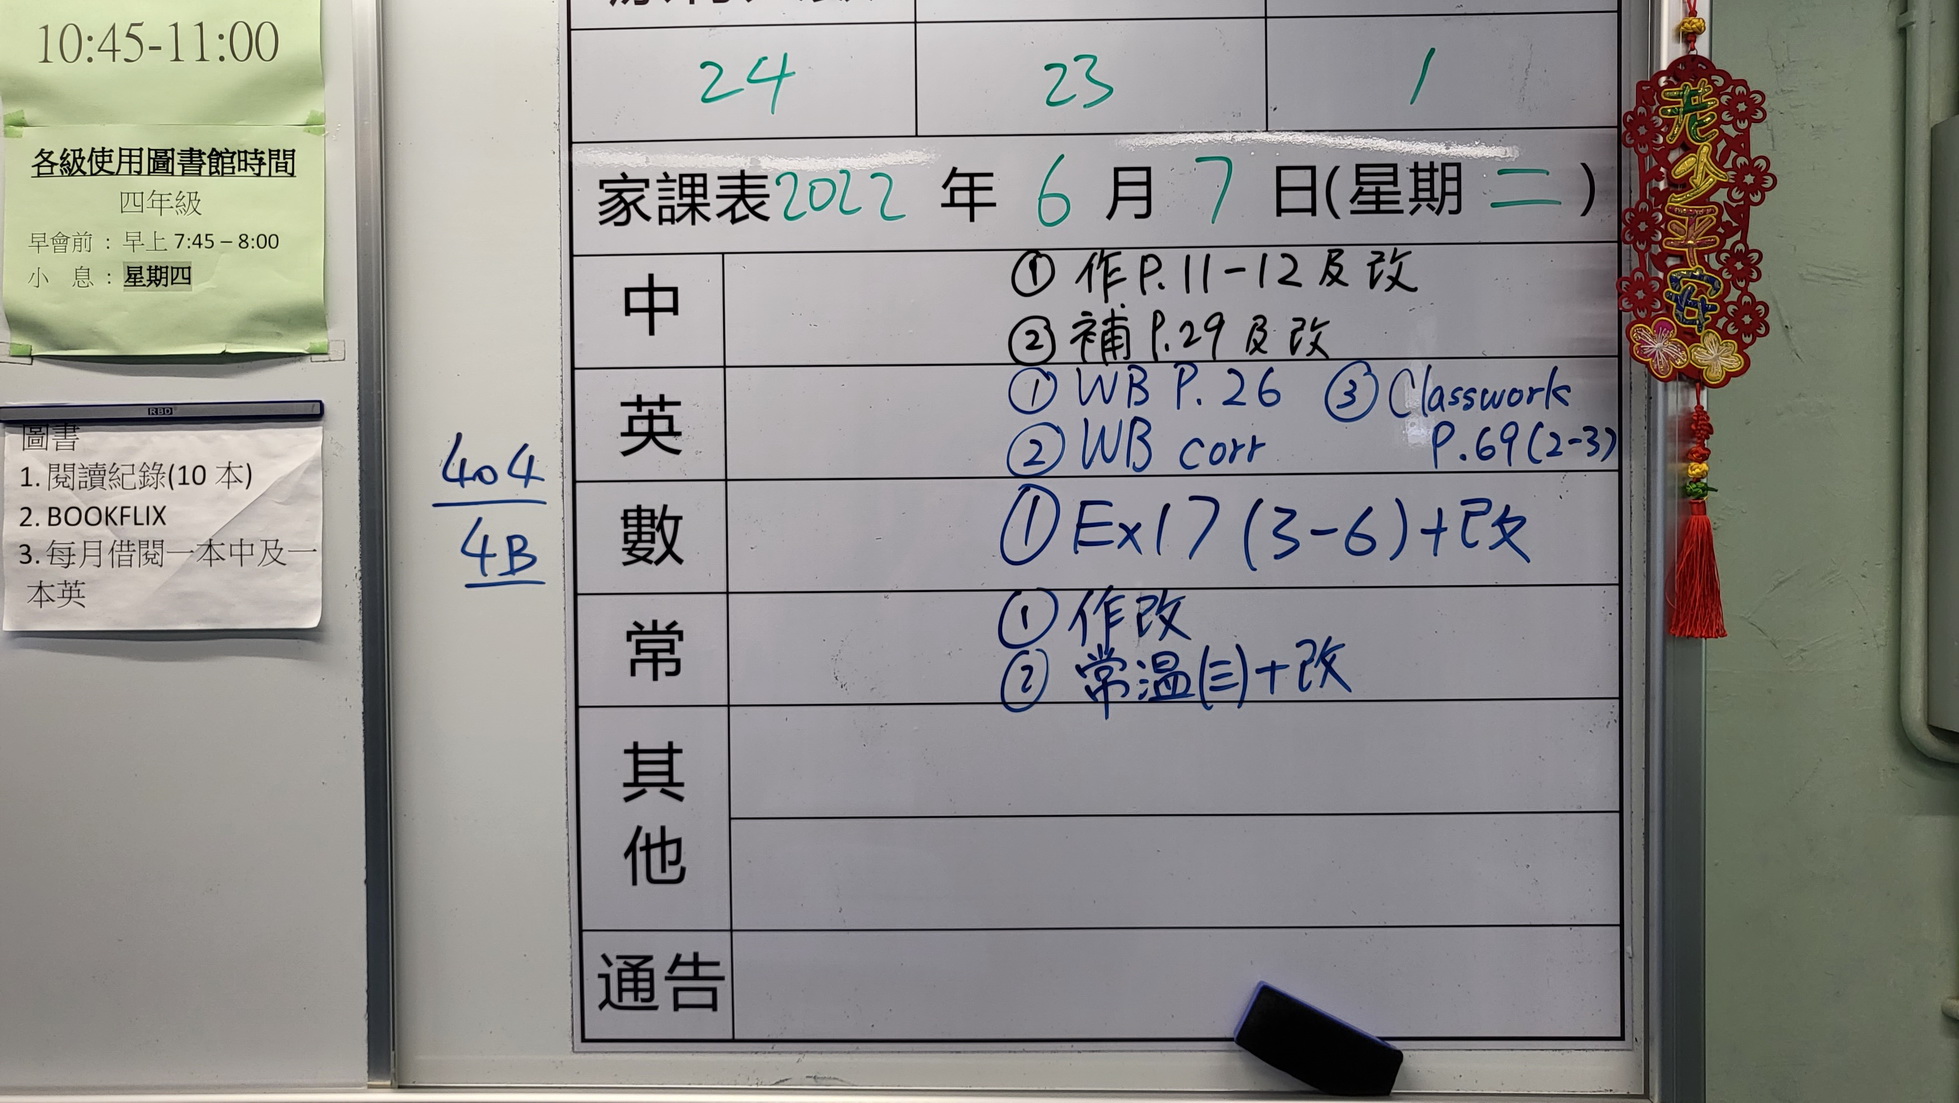 10:45-11:00
各級使用圖書館時間
四年級
早會前：早上 7:45 – 8:00
小 息：星期四
RBD
圖書
1. 閱讀紀錄(10 本)
2. BOOKFLIX
3. 每月借閱一本中及一
本英
404
4B
24 23 1
家課表2022 年 6 月 7 日(星期 二 )
中
① 作P.11-12及改
② 補 P.29 及改
英
① WB P. 26 ③ Classwork
② WB corr P.69(2-3)
數
① Ex17 (3-6)+改
常
① 作改
② 常温(三)+改
其
他
通告
老少平安